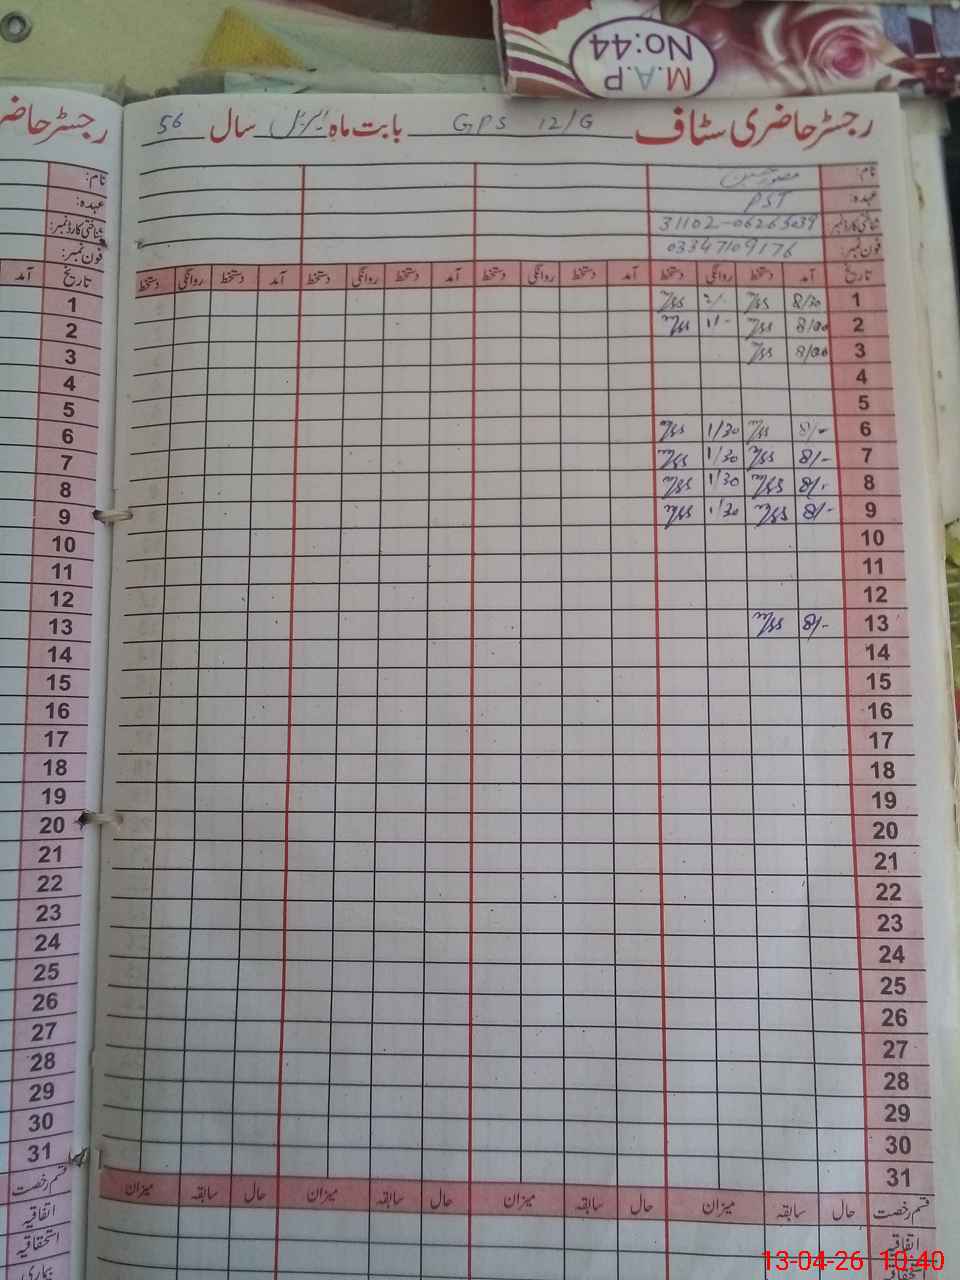 M.A.P
No:44
رجسٹر حاضری سٹاف GPS 12/G بابت ماہ اپریل سال 56
نام: منصور حسین
عہدہ: PST
شناختی کارڈ نمبر: 31102-0626
فون نمبر: 03347109176
تاریخ آمد دستخط روانگی دستخط آمد دستخط روانگی دستخط آمد دستخط روانگی دستخط
1 8/30 2/-
2 8/00 11-
3 8/00
4
5
6 8/- 1/30
7 8/- 1/30
8 8/- 1/30
9 8/- 1/30
10
11
12
13 8/-
14
15
16
17
18
19
20
21
22
23
24
25
26
27
28
29
30
31
قسم رخصت حال سابقہ میزان حال سابقہ میزان حال سابقہ میزان
اتفاقیہ
رجسٹر حاضر
نام:
عہدہ:
شناختی کارڈ نمبر:
فون نمبر:
تاریخ آمد
1
2
3
4
5
6
7
8
9
10
11
12
13
14
15
16
17
18
19
20
21
22
23
24
25
26
27
28
29
30
31
قسم رخصت
اتفاقیہ
استحقاقیہ
بیماری
13-04-26 10:40